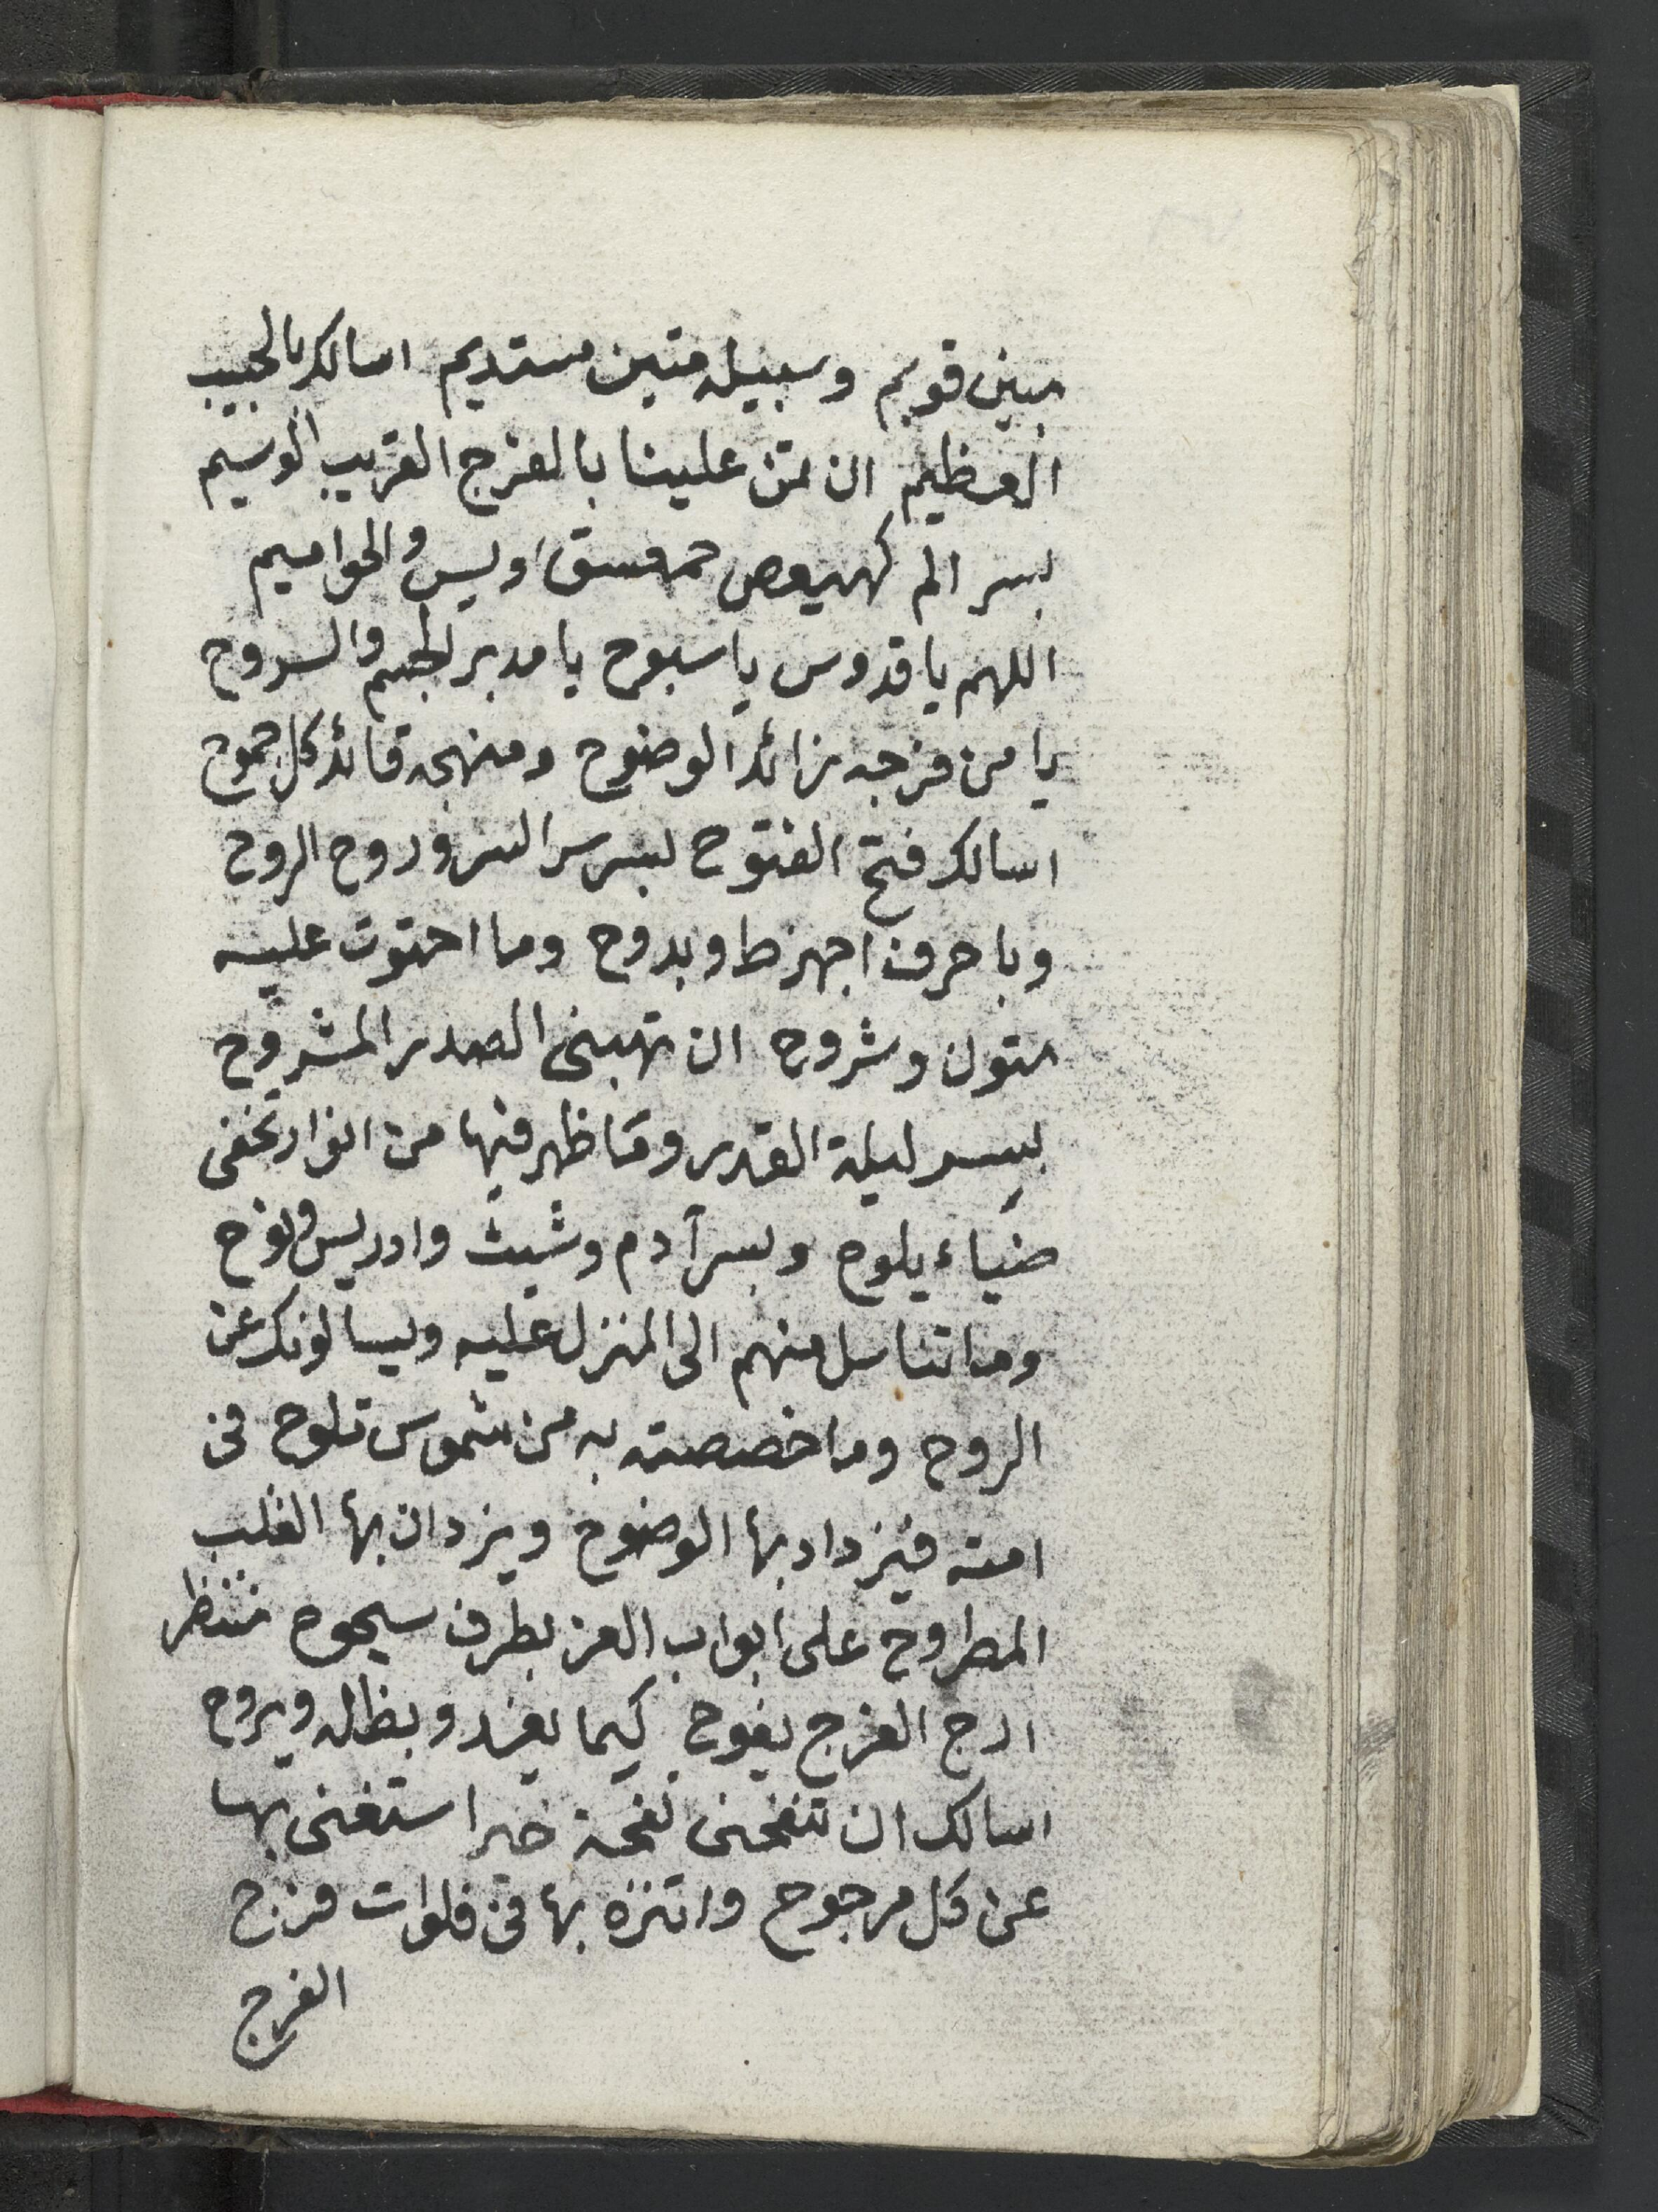 مبين قويم وسبيله متين مستديم اسالك بالحبيب
العظيم ان تمن علينا بالفرج القريب الوسيم
بسر الم كهيعص حمعسق ويس والحواميم
اللهم يا قدوس يا سبوح يا مدبر الجسم والروح
يا من فرجه زائد الوضوح ومنهجه قائد كل جموح
اسالك فتح الفتوح بسر سر السر وروح الروح
وباحرف اجهزط وبدوح وما احتوت عليه
متون وشروح ان تهبنى الصدر المشروح
بسر ليلة القدر وما ظهر فيها من انوار تخفى
ضياء يلوح وبسر آدم وشيث وادريس ونوح
وما تناسل منهم الى المنزل عليه ويسالونك عن
الروح وما خصصته به من شموس تلوح فى
امته فيزداد بها الوضوح ويزدان بها القلب
المطروح على ابواب العز بطرف سيحوح تنتظر
ارج الفرج يفوح كيما يغدو بظاله ويروح
اسالك ان تنفحنى نفحة خير استغنى بها
عن كل مرجوح واتنزه بها فى فلوات فرج
الفرج